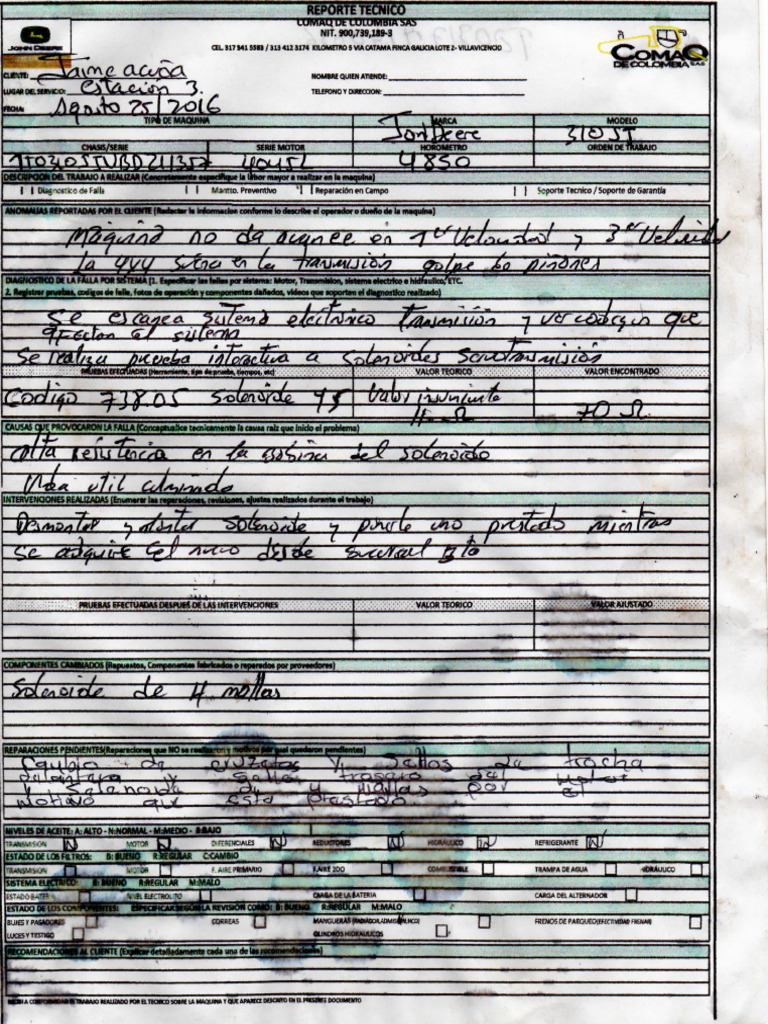 REPORTE TECNICO
COMAQ DE COLOMBIA SAS
NIT. 900,739,189-3
JOHN DEERE
CEL. 317 941 5583 / 313 412 3174 KILOMETRO 5 VIA CATAMA FINCA GALICIA LOTE 2- VILLAVICENCIO
COMAQ
DE COLOMBIA S.A.S
CLIENTE: Jaime acuña NOMBRE QUIEN ATIENDE:
LUGAR DEL SERVICIO: Estacion 3. TELEFONO Y DIRECCION:
FECHA: Agosto 25/2016
TIPO DE MAQUINA MARCA MODELO
Jonh Deere 310 SJ
CHASIS/SERIE SERIE MOTOR HOROMETRO ORDEN DE TRABAJO
4850
DESCRIPCION DEL TRABAJO A REALIZAR (Concretamente especifique la labor mayor a realizar en la maquina)
( ) Diagnostico de Falla ( ) Mantto. Preventivo ( ) Reparación en Campo ( ) Soporte Tecnico / Soporte de Garantia
ANOMALIAS REPORTADAS POR EL CLIENTE (Redactar la informacion conforme lo describe el operador o dueño de la maquina)
Maquina no da avance en 1ª Velocidad y 3ª Velocidad
La 4x4 suena en la transmisión golpe de piñones
DIAGNOSTICO DE LA FALLA POR SISTEMA (1. Especificar las fallas por sistema: Motor, Transmision, sistema electrico e hidraulico, ETC.
2. Registrar pruebas, codigos de falla, fotos de operación y componentes dañados, videos que soporten el diagnostico realizado)
Se escanea sistema electrico transmisión y ver codigos que
afectan el sistema
Se realiza prueba interactiva a solenoides transmisión
PRUEBAS EFECTUADAS (Herramienta, tipo de prueba, tiempos, etc) VALOR TEORICO VALOR ENCONTRADO
Codigo 738.05 Solenoide Y5 Valor
Ω 70 Ω
CAUSAS QUE PROVOCARON LA FALLA (Conceptualice tecnicamente la causa raiz que inicio el problema)
alta resistencia en la bobina del solenoide
Vida util culminado
INTERVENCIONES REALIZADAS (Enumerar las reparaciones, revisiones, ajustes realizados durante el trabajo)
Desmontar y montar solenoide y ponerle uno prestado mientras
se adquire el nuevo desde sucursal Bta
PRUEBAS EFECTUADAS DESPUES DE LAS INTERVENCIONES VALOR TEORICO VALOR AJUSTADO
COMPONENTES CAMBIADOS (Repuestos, Componentes fabricados o reparados por proveedores)
Solenoide de 4 mollas
REPARACIONES PENDIENTES(Reparaciones que NO se realizaron y motivos por igual quedaron pendientes)
Cambio de cruzetas y sellos de trocha
delantera y sello trasero del motor
y Solenoide de 4 mollas por el
motivo que esta prestado
NIVELES DE ACEITE: A: ALTO - N:NORMAL - M:MEDIO - B:BAJO
TRANSMISION N MOTOR N DIFERENCIALES N REDUCTORES N HIDRAULICO N REFRIGERANTE N
ESTADO DE LOS FILTROS: B: BUENO R:REGULAR C:CAMBIO
TRANSMISION MOTOR F. AIRE PRIMARIO F.AIRE 2DO COMBUSTIBLE TRAMPA DE AGUA HIDRÁULICO
SISTEMA ELECTRICO: B: BUENO R:REGULAR M:MALO
ESTADO BATERIA NIVEL ELECTROLITO CARGA DE LA BATERIA CARGA DEL ALTERNADOR
ESTADO DE LOS COMPONENTES: ESPECIFICAR SEGÚN LA REVISIÓN COMO: B: BUENO R:REGULAR M:MALO
BUJES Y PASADORES CORREAS MANGUERAS FRENOS DE PARQUEO(EFECTIVIDAD FRENAR)
LUCES Y TESTIGO CILINDROS HIDRAULICOS
RECOMENDACIONES AL CLIENTE (Explicar detalladamente cada una de las recomendaciones)
RECIBI A CONFORMIDAD EL TRABAJO REALIZADO POR EL TECNICO SOBRE LA MAQUINA Y QUE APARECE DESCRITO EN EL PRESENTE DOCUMENTO